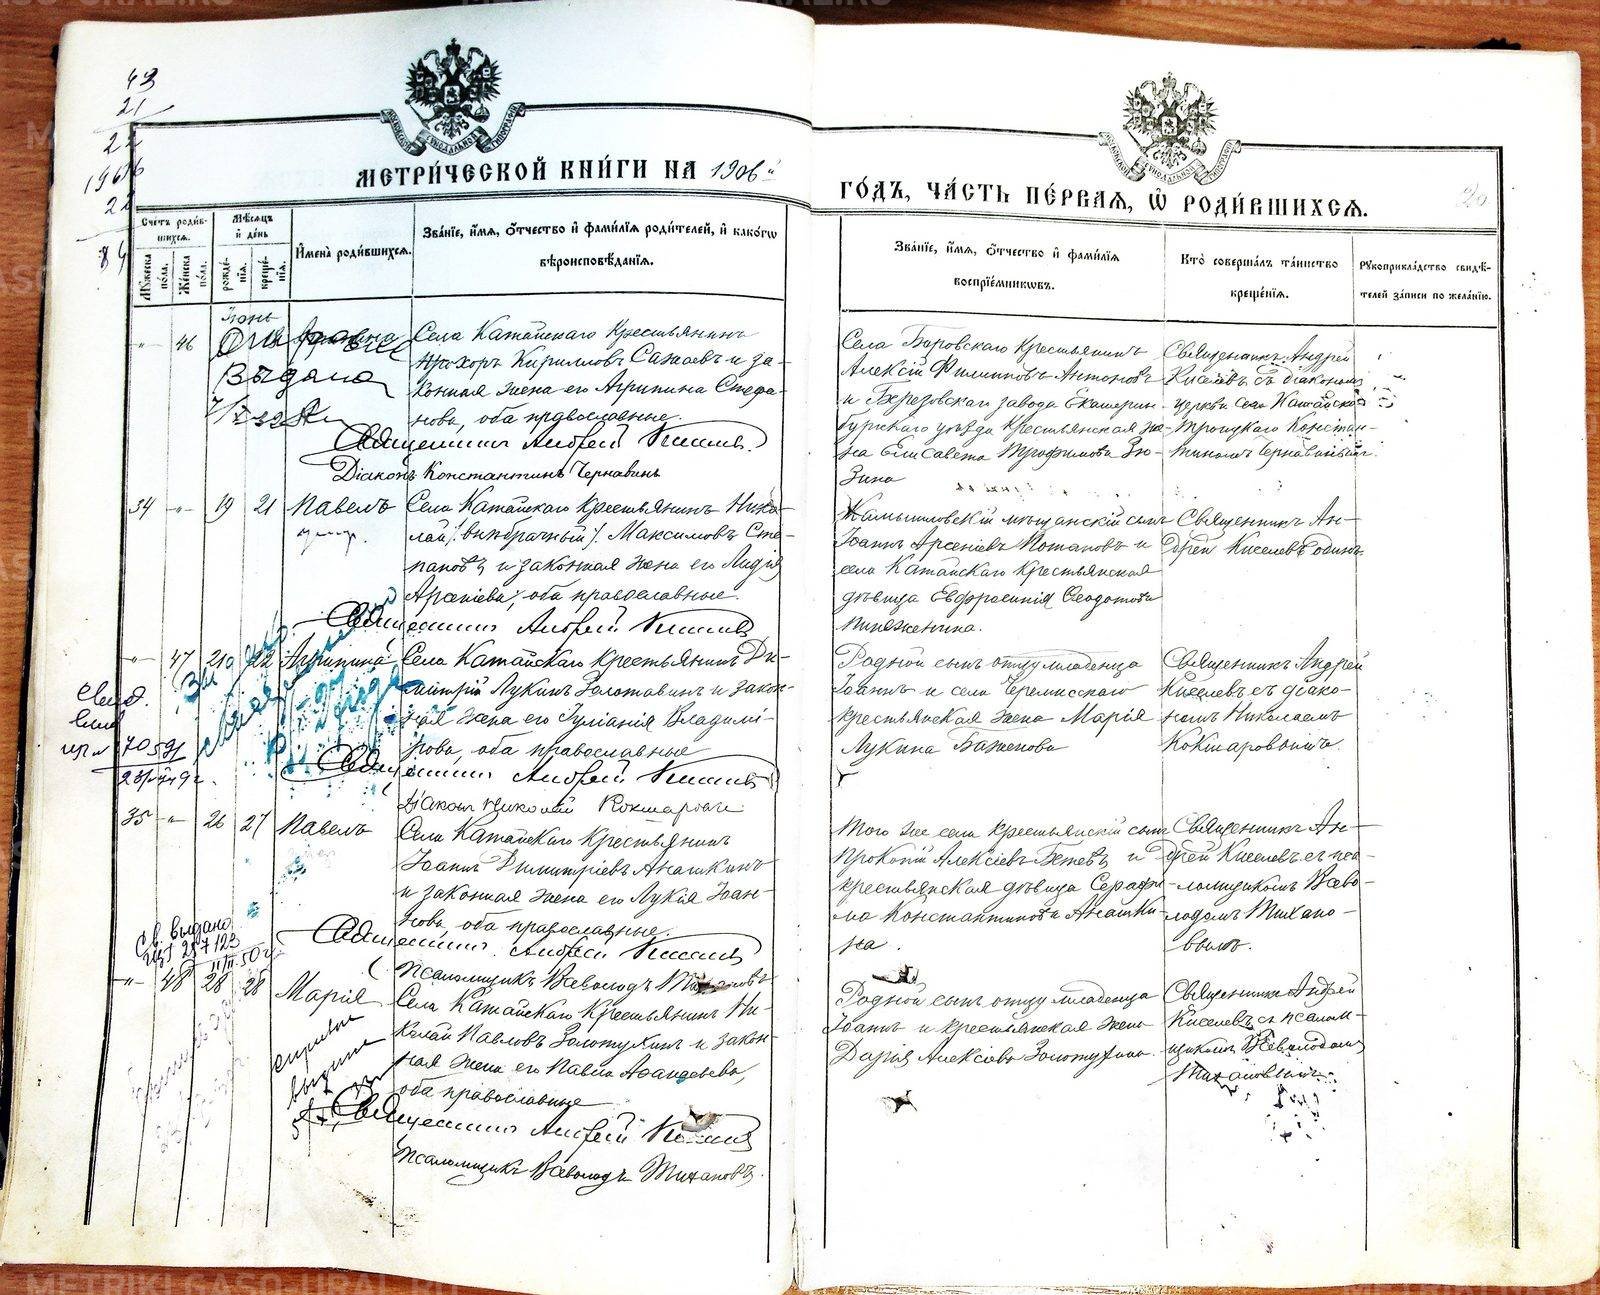 43
21
22
МЕТРИ́ЧЕСКОЙ КНИ́ГИ НА 1906й
ГО́ДЪ, ЧА́СТЬ ПЕ́РВАЯ, Ѡ҆ РОДИ́ВШИХСЯ.
20
Сче́тъ роди́вшихся.
Мѣ́сяцъ и҆ де́нь
И҆мена̀ роди́вшихся.
Зва́нїе, и҆́мя, ѻ҆́тчество и҆ фами́лїя роди́телей, и҆ како́гѡ
вѣроисповѣ́данїя.
Зва́нїе, и҆́мя, ѻ҆́тчество и҆ фами́лїя
воспрїе́мниковъ.
Кто̀ соверша́лъ та́инство
креще́нїя.
Рꙋкоприкла́дство свидѣ́-
телей за́писи по жела́нїю.
Мꙋ́жеска по́ла.
Же́нска по́ла.
рожде́нїя.
креще́нїя.
Іюнь
46
Выдана
Села Катайскаго крестьянинъ
Прохоръ Кирилловъ Сажаевъ и за-
конная жена его Агрипина Стефа-
нова, оба православные.
Священникъ Андрей Киселевъ
Діаконъ Константинъ Чернавинъ
Села Боровскаго крестьянинъ
Алексій Филипповъ Антоновъ
и Березовскаго завода Екатерин-
бургскаго уѣзда крестьянская же-
на Елисавета Трофимова Зю-
зина
Священникъ Андрей
Киселевъ съ діакономъ
церкви села Катайскаго
Троицкаго Констан-
тиномъ Чернавинымъ.
34 -"- 19 21 Павелъ
Села Катайскаго крестьянинъ Нико-
лай /внѣбрачный/ Максимовъ Сте-
пановъ и законная жена его Лидія
Арсеніева, оба православные.
Священникъ Андрей Киселевъ
Камышловскій мѣщанскій сынъ
Іоаннъ Арсеніевъ Потаповъ и
села Катайскаго крестьянская
дѣвица Евфросинія Ѳеодотова
Священникъ Ан-
дрей Киселевъ одинъ.
-"- 47 21 22 Агрипина
Села Катайскаго крестьянинъ Ди-
митрій Лукинъ Золотавинъ и закон-
ная жена его Іуліанія Владимі-
рова, оба православные
Священникъ Андрей Киселевъ
Діаконъ Николай Кокшаровъ
Родной сынъ отцу младенца
Іоаннъ и села Черемисскаго
крестьянская жена Марія
Лукина Баженова
Священникъ Андрей
Киселевъ съ діако-
номъ Николаемъ
Кокшаровымъ.
35 -"- 26 27 Павелъ
Села Катайскаго крестьянинъ
Іоаннъ Димитріевъ Анашкинъ
и законная жена его Лукія Іоан-
нова, оба православные.
Священникъ Андрей Киселевъ
Псаломщикъ Всеволодъ Тихановъ
Того же села крестьянскій сынъ
Прокопій Алексіевъ и
крестьянская дѣвица Серафи-
ма Константинова Анашки-
на.
Священникъ Ан-
дрей Киселевъ съ пса-
ломщикомъ Всево-
лодомъ Тихано-
вымъ.
Св. выдано
-"- 48 28 28 Марія
Села Катайскаго крестьянинъ Ни-
колай Павловъ Золотухинъ и закон-
ная жена его Павла Аѳанасьева,
оба православные
Священникъ Андрей Киселевъ
Псаломщикъ Всеволодъ Тихановъ.
Родной сынъ отцу младенца
Іоаннъ и крестьянская жена
Дарія Алексіева Золотухина.
Священникъ Андрей
Киселевъ съ псалом-
щикомъ Всеволодомъ
Тихановымъ.
справка
выдана